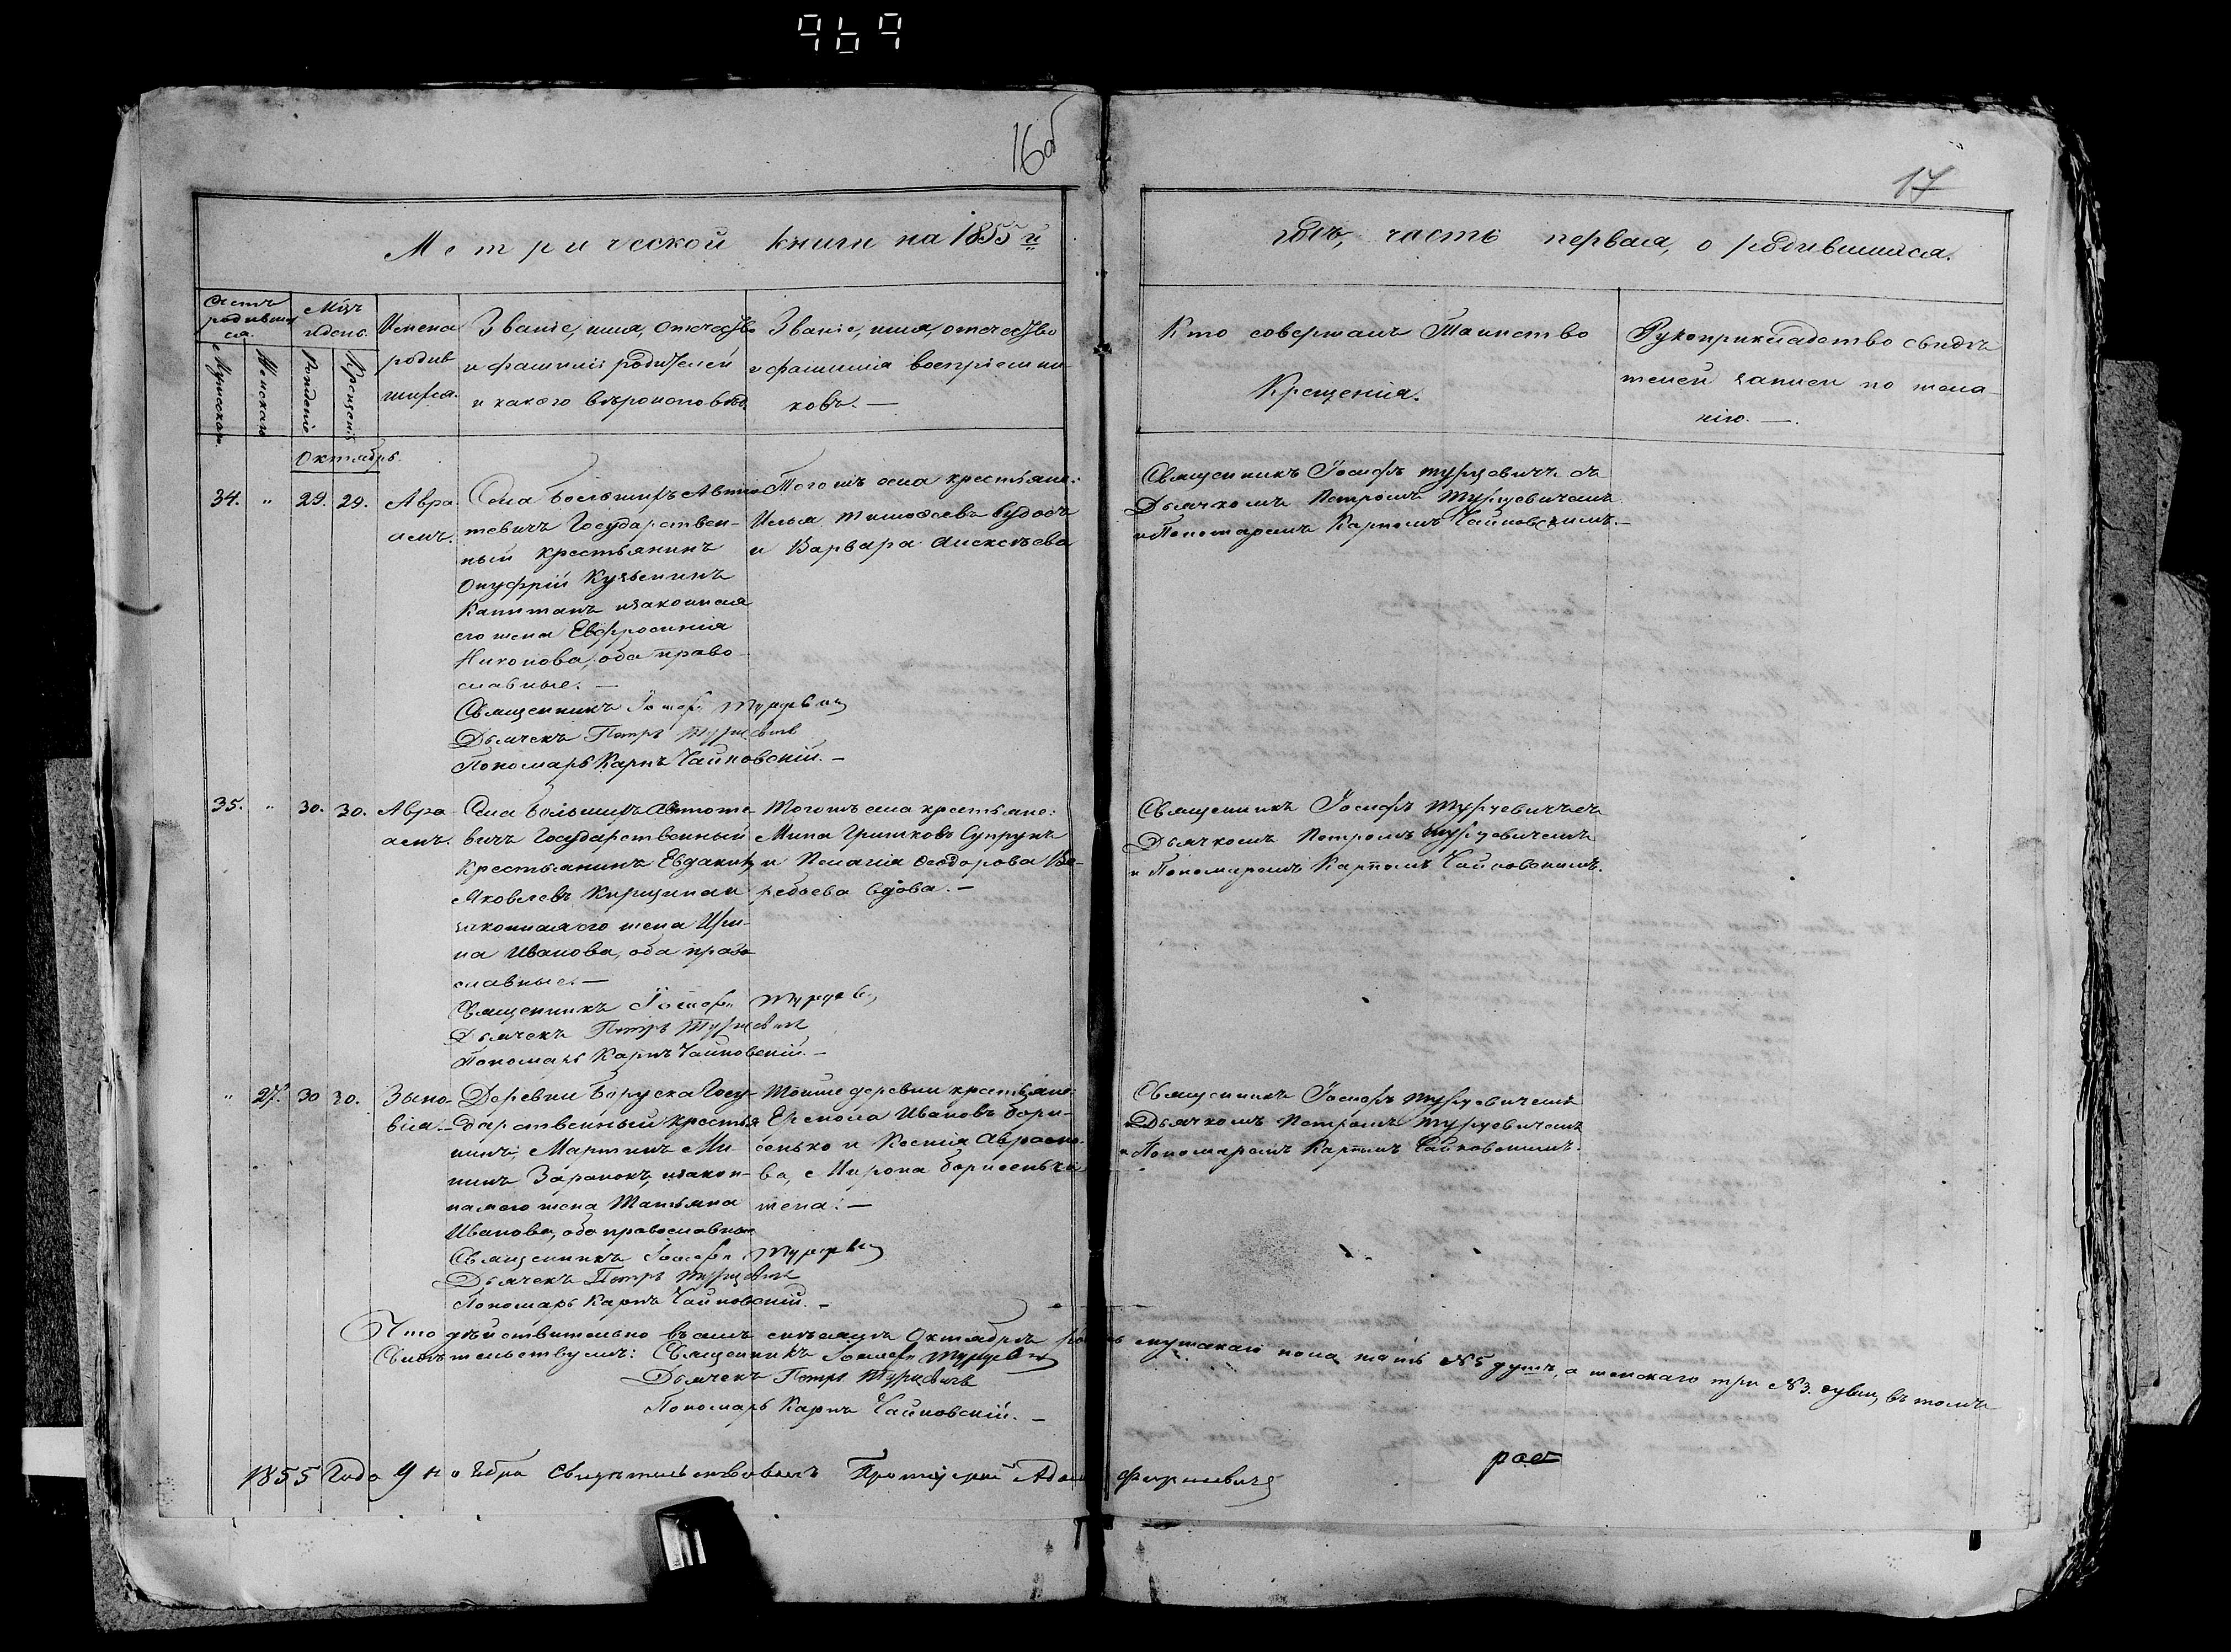 969
16об
17
Метрической книги на 1855й
годъ, часть первая, о родившихся.
Счетъ родившихся.
Мужскаго
Женскаго
Мцъ и день.
Рожденіе
Крещеніе
Имена родившихся.
Званіе, имя, отчество
и фамиліи родителей
и какого вѣроисповѣд.
Званіе, имя, отчество
и фамилія воспріемни
ковъ. —
Кто совершалъ Таинство
Крещенія.
Рукоприкладство свидѣ
телей записи по жела
нію. —.
Октябрь.
34. " 29. 29. Авра
амъ.
Села Большихъ Автю
тевичъ Государствен-
ный крестьянинъ
Онуфрій Кузьминъ
Капитанъ изаконная
его жена Евфросинія
Никонова, оба право
славные. —
Священникъ Іосифъ Турцевич
Дьячекъ Петръ Турцевичъ
Пономарь Карпъ Чайковскій. —
Тогожъ села крестьяне:
Илья Тимоѳеевъ
и Варвара Алексѣева
Священникъ Іосифъ Турцевичъ съ
Дьячкомъ Петромъ Турцевичемъ
и Пономаремъ Карпомъ Чайковскимъ. —
35. " 30. 30. Авра
амъ.
Села Большихъ Автюте
вичъ Государственный
Крестьянинъ Евдакимъ
Яковлевъ
законная его жена Ири-
на Иванова, оба право
славные. —
Священникъ Іосифъ Турцевич
Дьячекъ Петръ Турцевичъ
Пономарь Карпъ Чайковскій. —
Тогожъ села крестьяне:
Мина Гришковъ Супрунъ
и Пелагія Ѳеодорова Ве-
ребьева вдова. —
Священникъ Іосифъ Турцевичъ съ
Дьячкомъ Петромъ Турцевичемъ
и Пономаремъ Карпомъ Чайковскимъ.
" 27. 30 30. Зино-
вія. —
Деревни Боруска Госу-
дарственный крестья
нинъ, Мартинъ Ми
нинъ Заранокъ, изакон-
ная его жена Татьяна
Иванова, оба православные
Священникъ Іосифъ Турцевич
Дьячекъ Петръ Турцевичъ
Пономарь Карпъ Чайковскій. —
Тойже деревни крестьяне
Ермола Ивановъ Бори-
сенько и Ксенія Авраамо-
ва, Мирона Борисенька
жена. —
Священникъ Іосифъ Турцевичемъ
Дьячкомъ Петромъ Турцевичемъ
и Пономаремъ Карпомъ Чайковскимъ.
Что дѣйствительно въ семъ мѣсяцѣ Октябрѣ мужскаго пола пять №5 душъ, а женскаго три №3. души, въ томъ
Свидѣтельствуемъ: Священникъ Іосифъ Турцевич
Дьячекъ Петръ Турцевичъ
Пономарь Карпъ Чайковскій. —
1855 Года 9 Ноября Свидѣтельствовалъ Протоіерей Адамъ